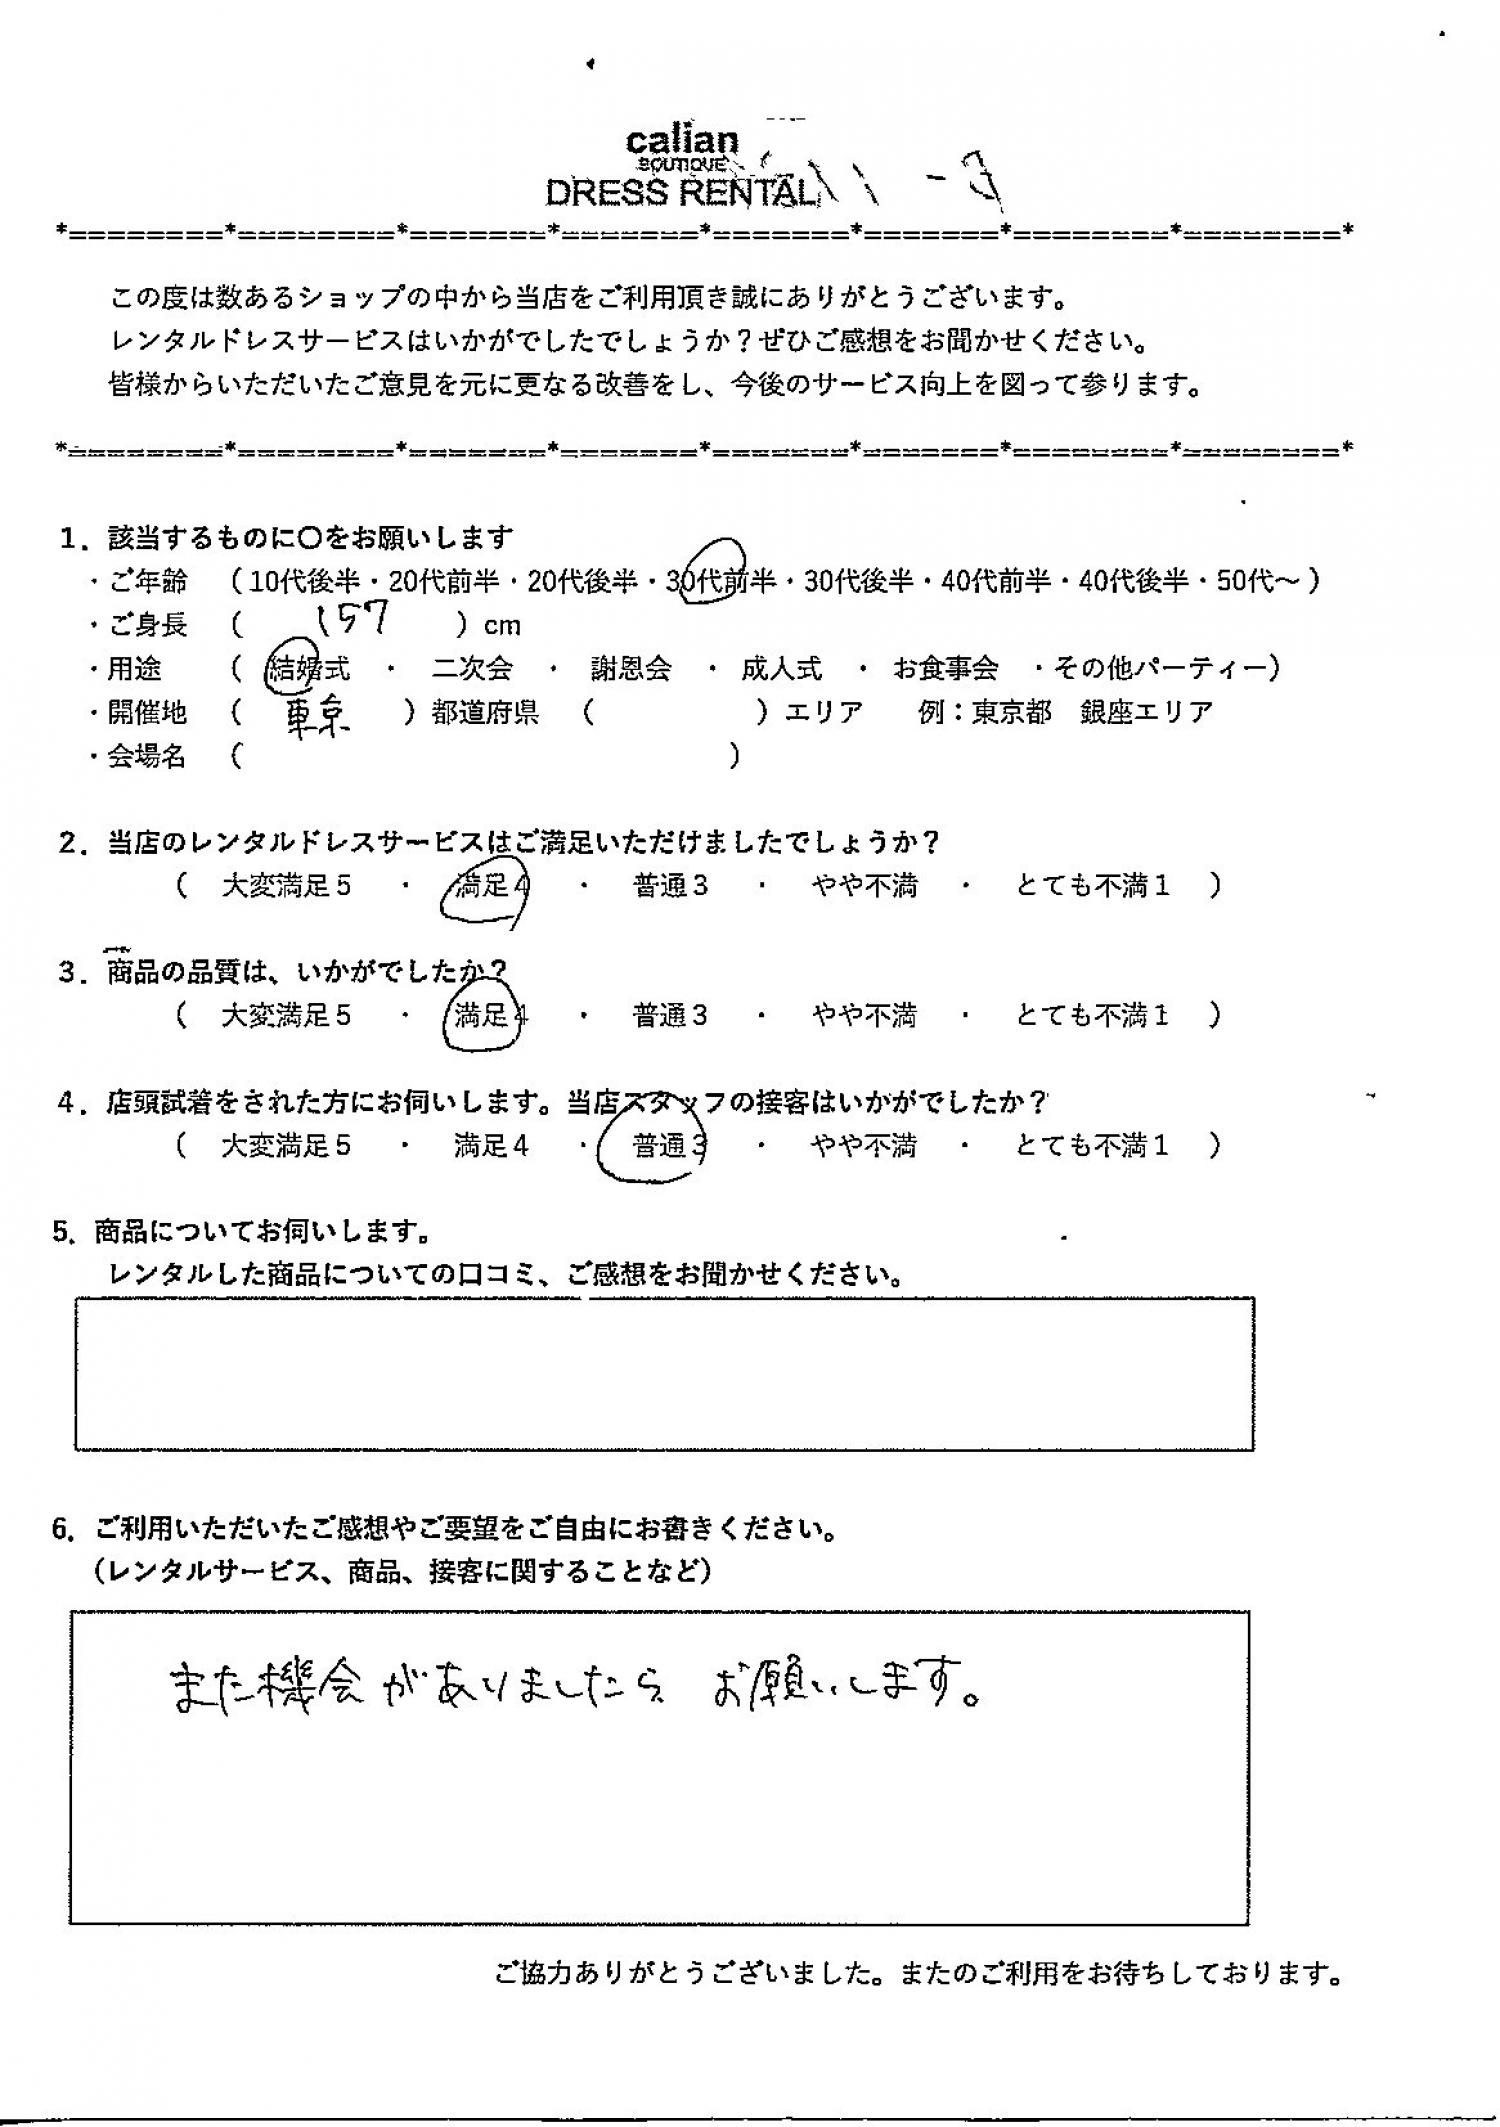 calian
BOUTIQUE
DRESS RENTAL
*========*========*=======*=======*=======*=======*========*========*
この度は数あるショップの中から当店をご利用頂き誠にありがとうございます。
レンタルドレスサービスはいかがでしたでしょうか？ぜひご感想をお聞かせください。
皆様からいただいたご意見を元に更なる改善をし、今後のサービス向上を図って参ります。
*========*========*=======*=======*=======*=======*========*========*
1．該当するものに〇をお願いします
・ご年齢　（10代後半・20代前半・20代後半・30代前半・30代後半・40代前半・40代後半・50代～）
・ご身長　（　157　）cm
・用途　（　結婚式　・　二次会　・　謝恩会　・　成人式　・　お食事会　・その他パーティー）
・開催地　（　東京　）都道府県　（　　　）エリア　例：東京都　銀座エリア
・会場名　（　　　）
2．当店のレンタルドレスサービスはご満足いただけましたでしょうか？
（　大変満足5　・　満足4　・　普通3　・　やや不満　・　とても不満1　）
3．商品の品質は、いかがでしたか？
（　大変満足5　・　満足4　・　普通3　・　やや不満　・　とても不満1　）
4．店頭試着をされた方にお伺いします。当店スタッフの接客はいかがでしたか？
（　大変満足5　・　満足4　・　普通3　・　やや不満　・　とても不満1　）
5．商品についてお伺いします。
レンタルした商品についての口コミ、ご感想をお聞かせください。
6．ご利用いただいたご感想やご要望をご自由にお書きください。
（レンタルサービス、商品、接客に関することなど）
また機会がありましたら お願いします。
ご協力ありがとうございました。またのご利用をお待ちしております。